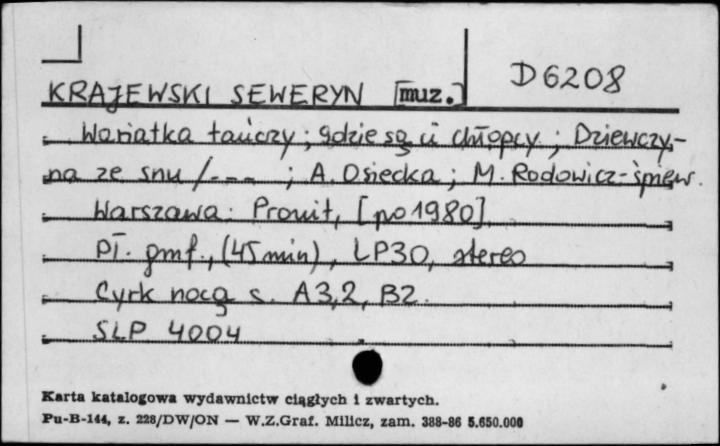 D6208
KRAJEWSKI SEWERYN [muz.]
Wariatka tańczy; gdzie są ci chłopcy; Dziewczy-
na ze snu /--- ; A. Osiecka; M. Rodowicz-śpiew.
Warszawa: Pronit, [po 1980]
Pł. gmf., (45 min), LP30, stereo
Cyrk nocą s. A3,2, B2.
SLP 4004
Karta katalogowa wydawnictw ciągłych i zwartych.
Pu-B-144, z. 228/DW/ON — W.Z.Graf. Milicz, zam. 388-86 5.650.000